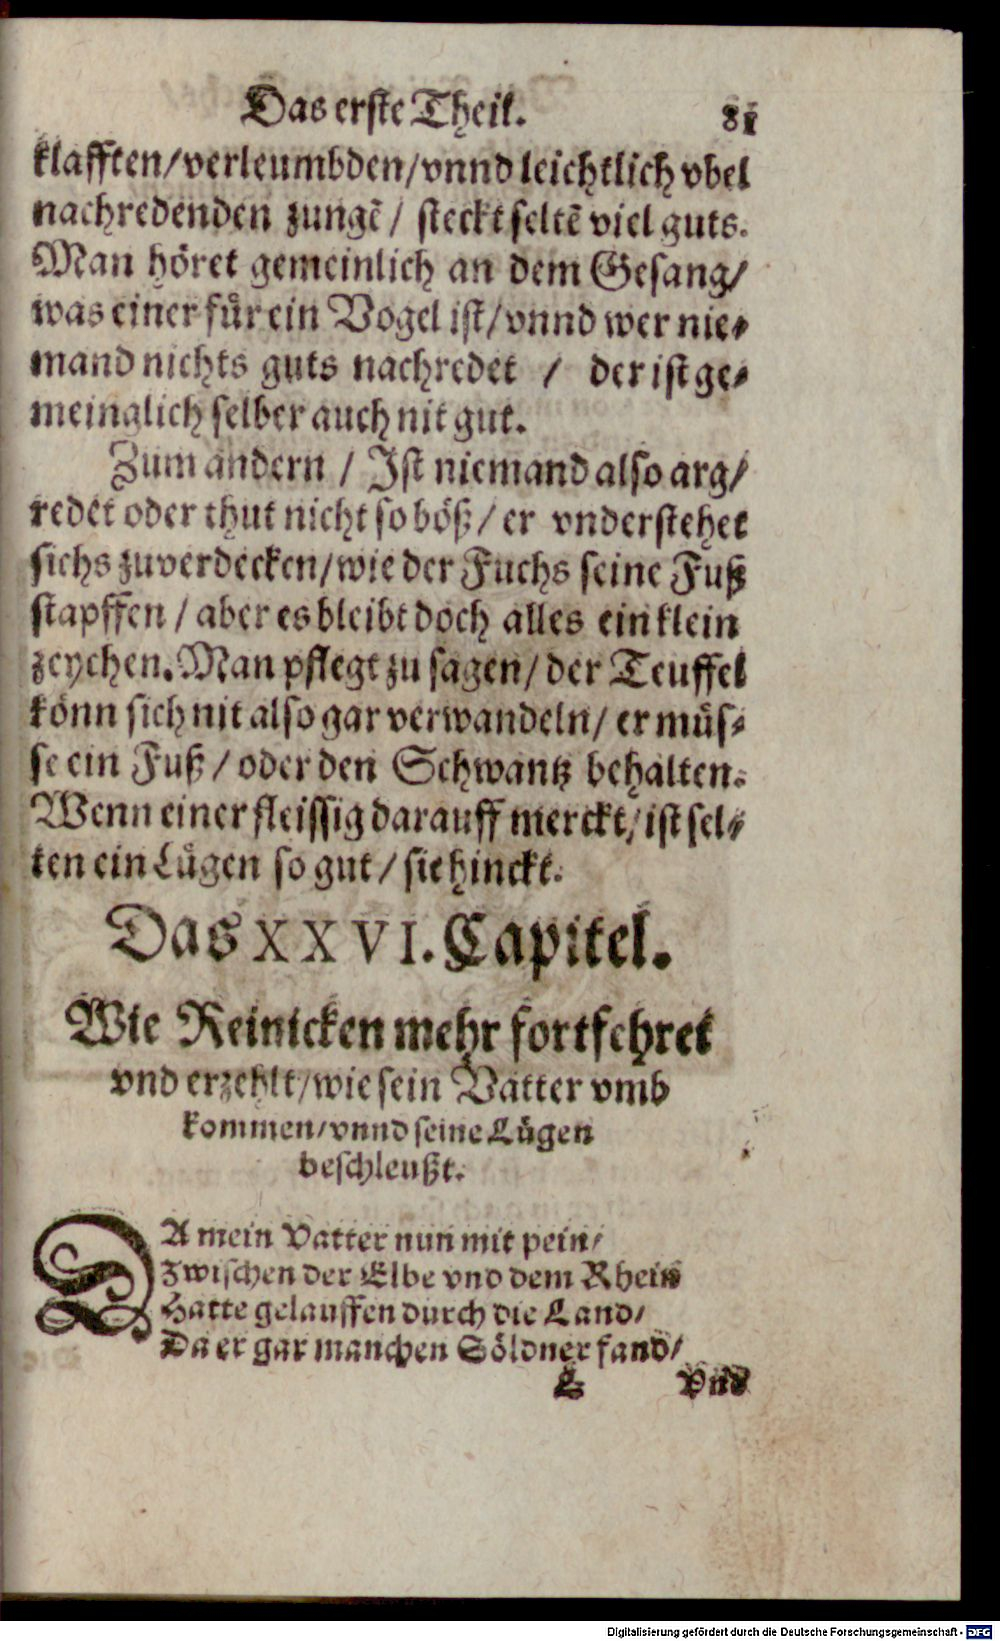 Das erste Theil. 81
klafften/verleumbden/vnnd leichtlich vbel
nachredenden zungẽ/ steckt seltẽ viel guts.
Man höret gemeinlich an dem Gesang/
was einer für ein Vogel ist/vnnd wer nie-
mand nichts guts nachredet / der ist ge-
meinglich selber auch nit gut.
Zum andern / Ist niemand also arg/
redet oder thut nicht so böß/ er vnderstehet
sichs zuverdecken/wie der Fuchs seine Fuß
stapffen / aber es bleibt doch alles ein klein
zeychen. Man pflegt zu sagen/ der Teuffel
könn sich nit also gar verwandeln/ er müs-
se ein Fuß / oder den Schwantz behalten.
Wenn einer fleissig darauff merckt/ ist sel-
ten ein Lügen so gut / sie hinckt.
Das XXVI. Capitel.
Wie Reinicken mehr fortfehret
vnd erzehlt/wie sein Vatter vmb
kommen/vnnd seine Lügen
beschleußt.
DA mein Vatter nun mit pein/
Zwischen der Elbe vnd dem Rhein
Hatte gelauffen durch die Land/
Da er gar manchen Söldner fand/
L Vnd
Digitalisierung gefördert durch die Deutsche Forschungsgemeinschaft - DFG